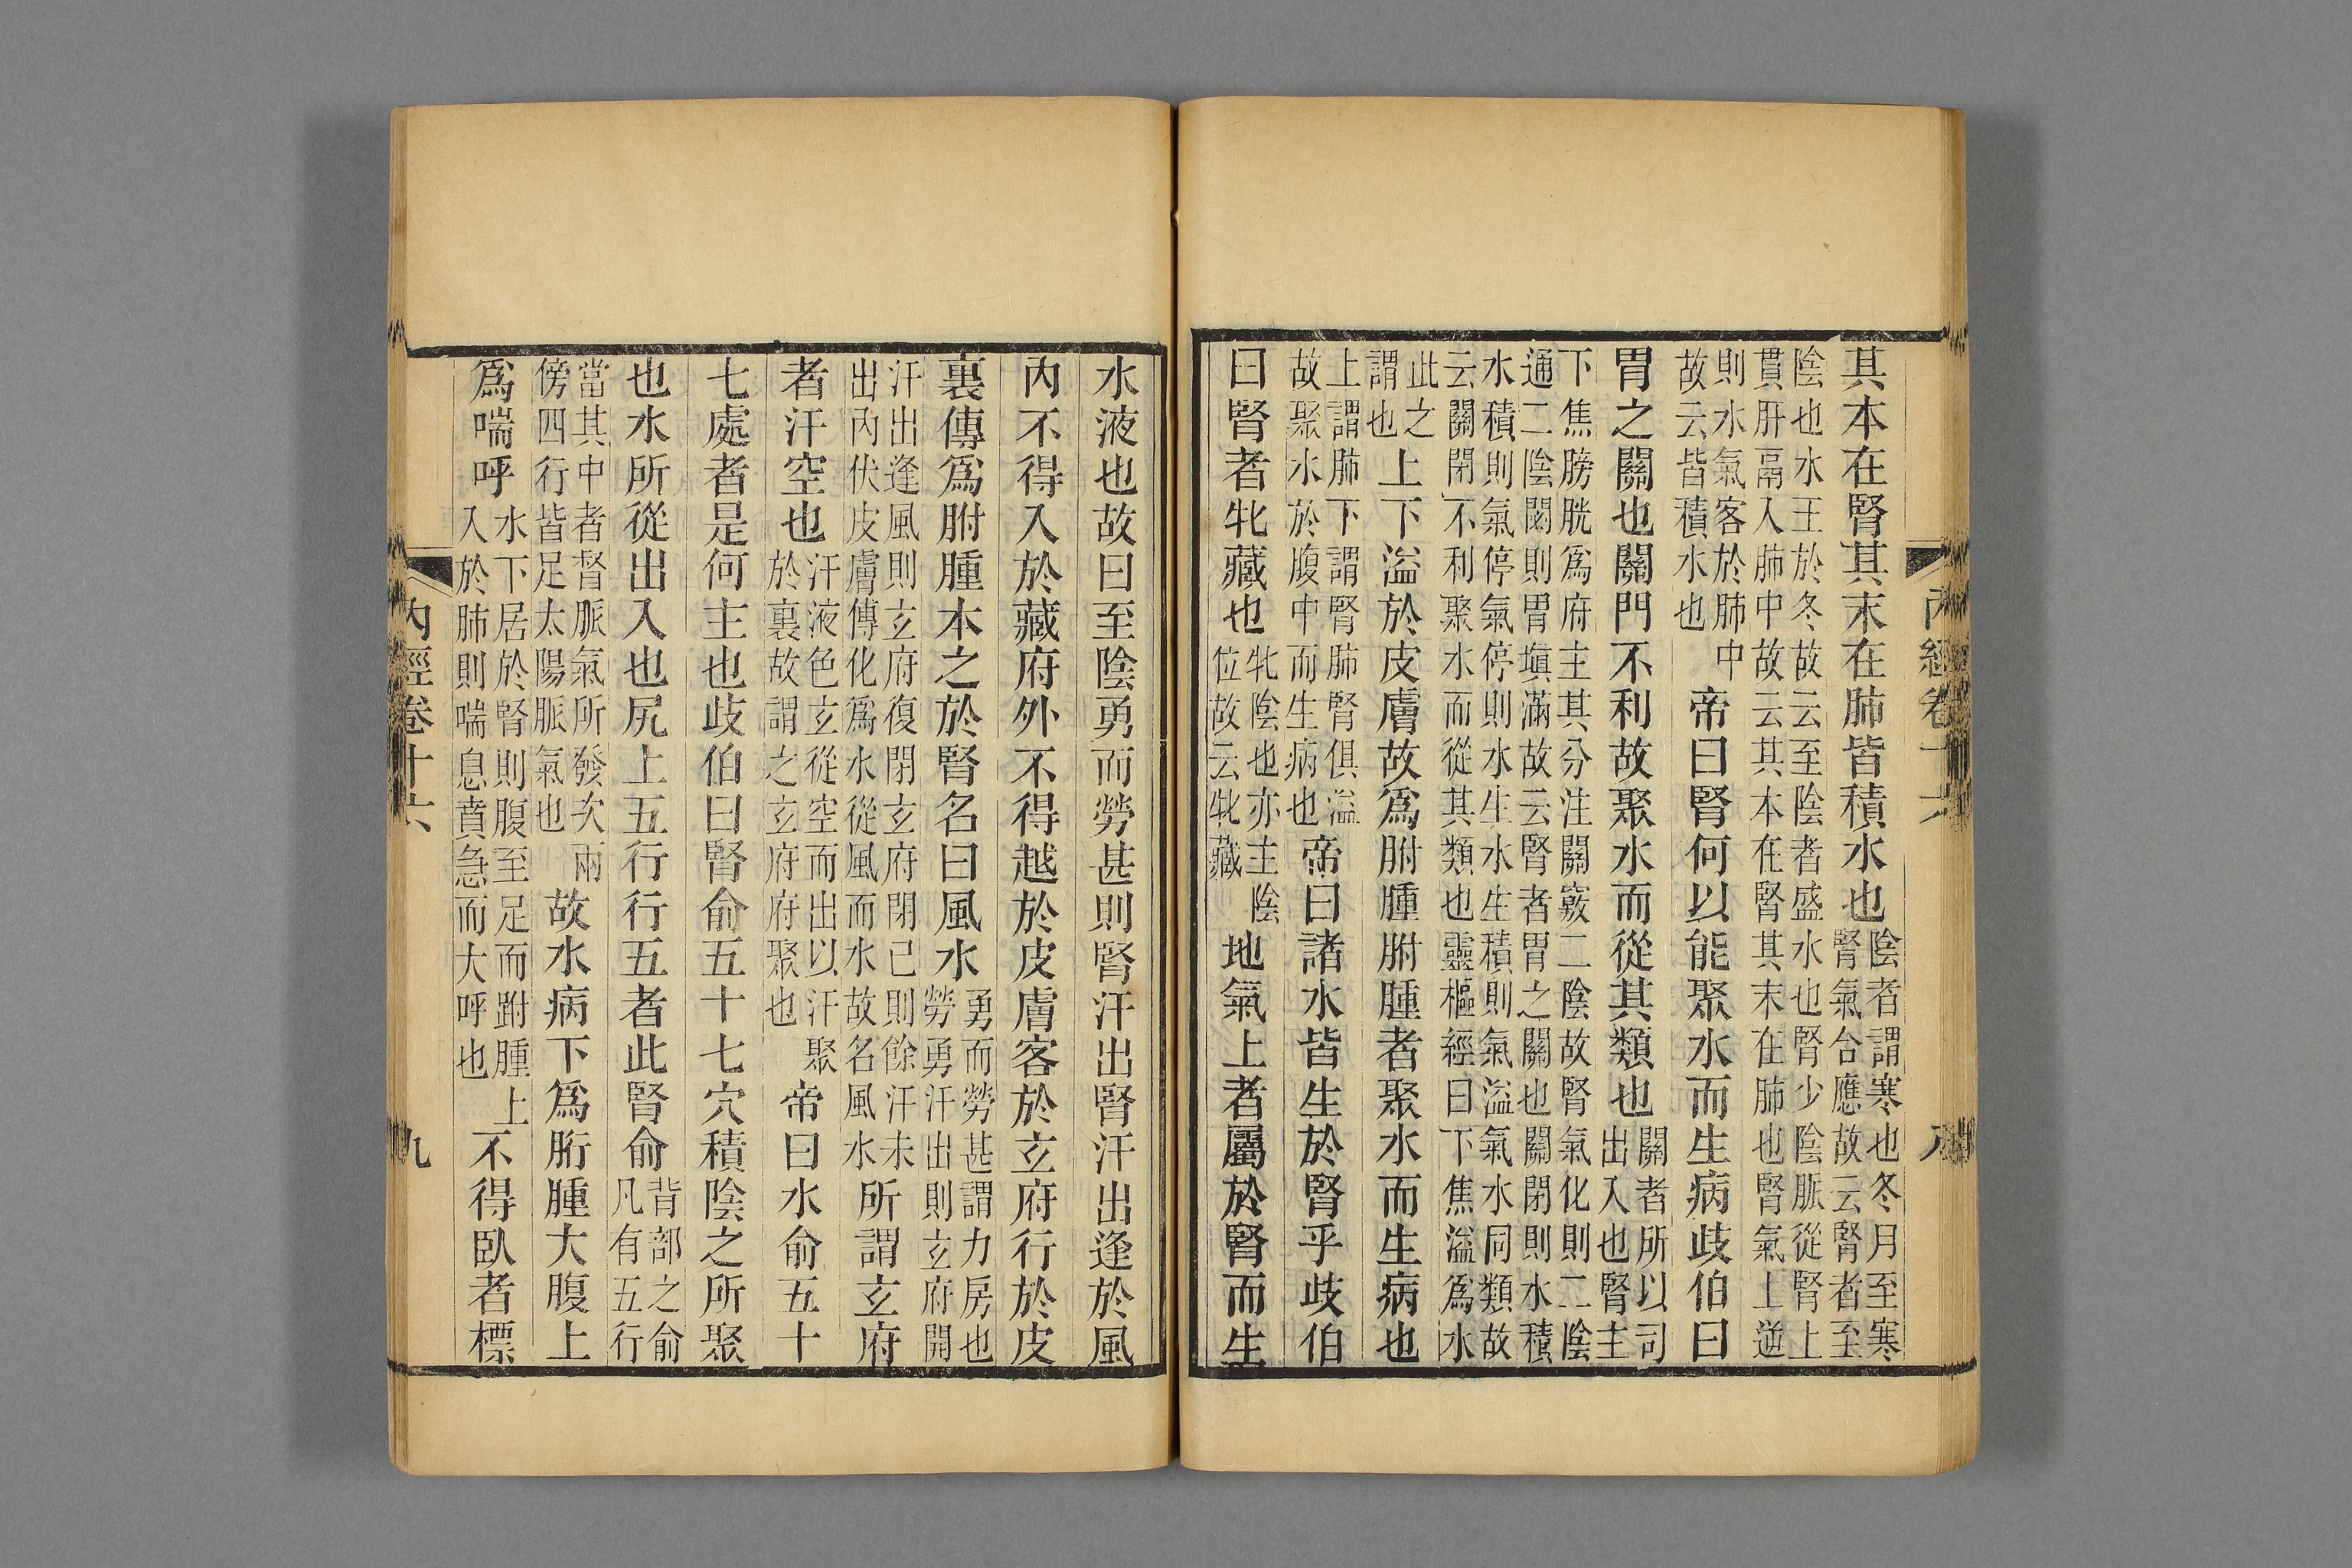 內經卷十六 八
其本在腎其末在肺皆積水也陰者謂寒也冬月至寒腎氣合應故云腎者至
陰也水王於冬故云至陰者盛水也腎少陰脈從腎上貫肝鬲入肺中故云其本在腎其末在肺也腎氣上逆
則水氣客於肺中故云皆積水也帝曰腎何以能聚水而生病歧伯曰
胃之關也關門不利故聚水而從其類也關者所以司出入也腎主
下焦膀胱爲府主其分注關竅二陰故腎氣化則二陰通二陰閟則胃塡滿故云腎者胃之關也關閉則水積
水積則氣停氣停則水生水生積則氣溢氣水同類故云關閉不利聚水而從其類也靈樞經曰下焦溢爲水
此之謂也上下溢於皮膚故爲胕腫胕腫者聚水而生病也
上謂肺下謂腎肺腎俱溢故聚水於腹中而生病也帝曰諸水皆生於腎乎歧伯
曰腎者牝藏也牝陰也亦主陰位故云牝藏地氣上者屬於腎而生
水液也故曰至陰勇而勞甚則腎汗出腎汗出逢於風
內不得入於藏府外不得越於皮膚客於玄府行於皮
裏傳爲胕腫本之於腎名曰風水勇而勞甚謂力房也勞勇汗出則玄府開
汗出逢風則玄府復閉玄府閉已則餘汗未出內伏皮膚傳化爲水從風而水故名風水所謂玄府
者汗空也汗液色玄從空而出以汗聚於裏故謂之玄府府聚也帝曰水俞五十
七處者是何主也歧伯曰腎俞五十七穴積陰之所聚
也水所從出入也尻上五行行五者此腎俞背部之俞凡有五行
當其中者督脈氣所發次兩傍四行皆足太陽脈氣也故水病下爲胻腫大腹上
爲喘呼水下居於腎則腹至足而跗腫上入於肺則喘息賁急而大呼也不得臥者標
內經卷十六 九